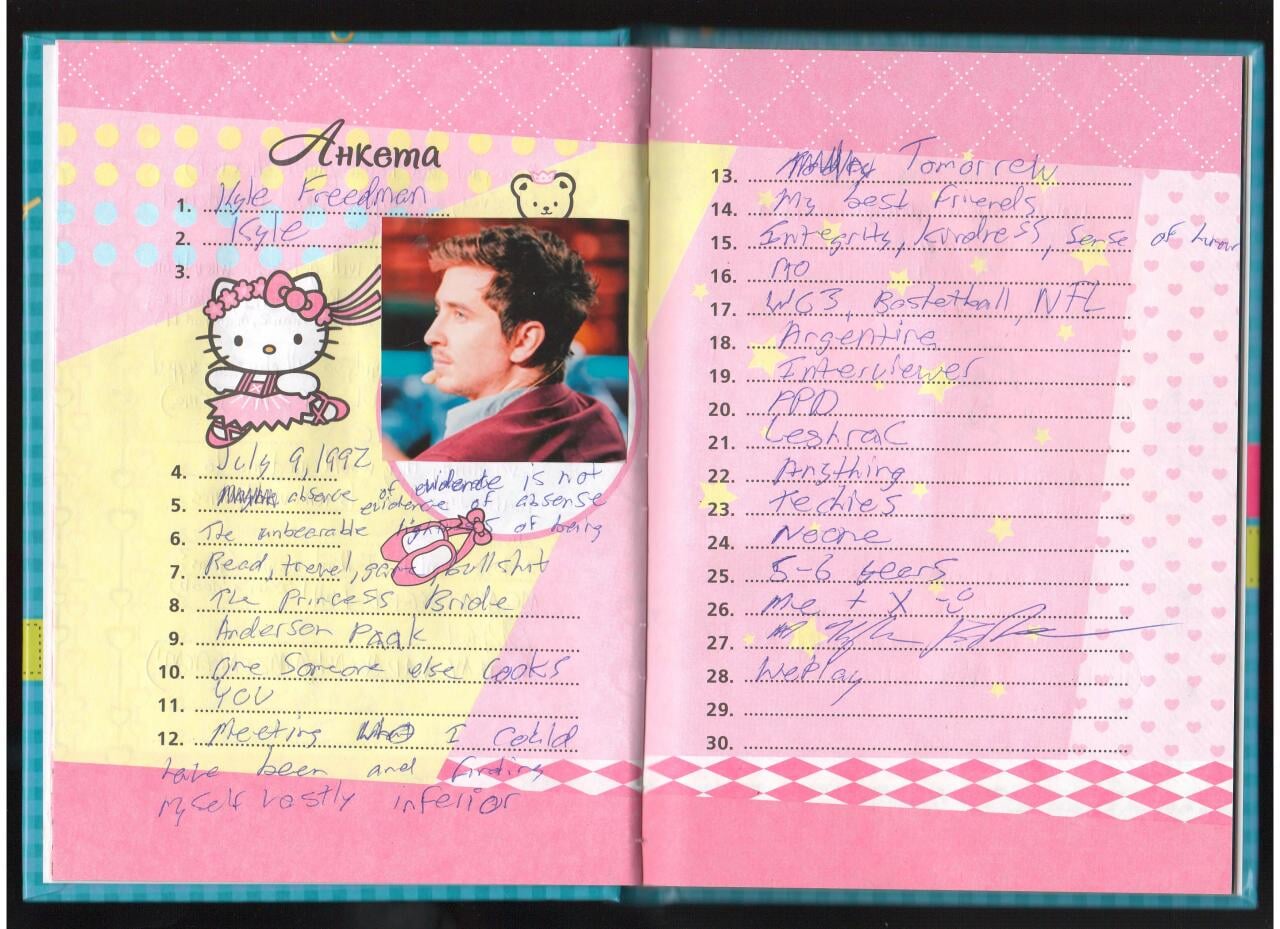 Анкета
1. Kyle Freedman
2. Kyle
3.
4. July 9, 1992
5. absence of evidence is not
evidence of absense
6. The unbearable lightness of being
7. Read, travel, game, bullshit
8. The Princess Bride
9. Anderson Paak
10. One someone else cooks
11. YOU
12. Meeting who I could
have been and finding
myself vastly inferior
13. Tomorrew
14. My best friends
15. Integrity, kindness, sense of humor
16. no
17. WC3, Basketball, NFL
18. Argentina
19. Interviewer
20. PPD
21. Leshrac
22. Anything
23. Techies
24. Noone
25. 5-6 years
26. me + X =
27.
28. WePlay
29.
30.